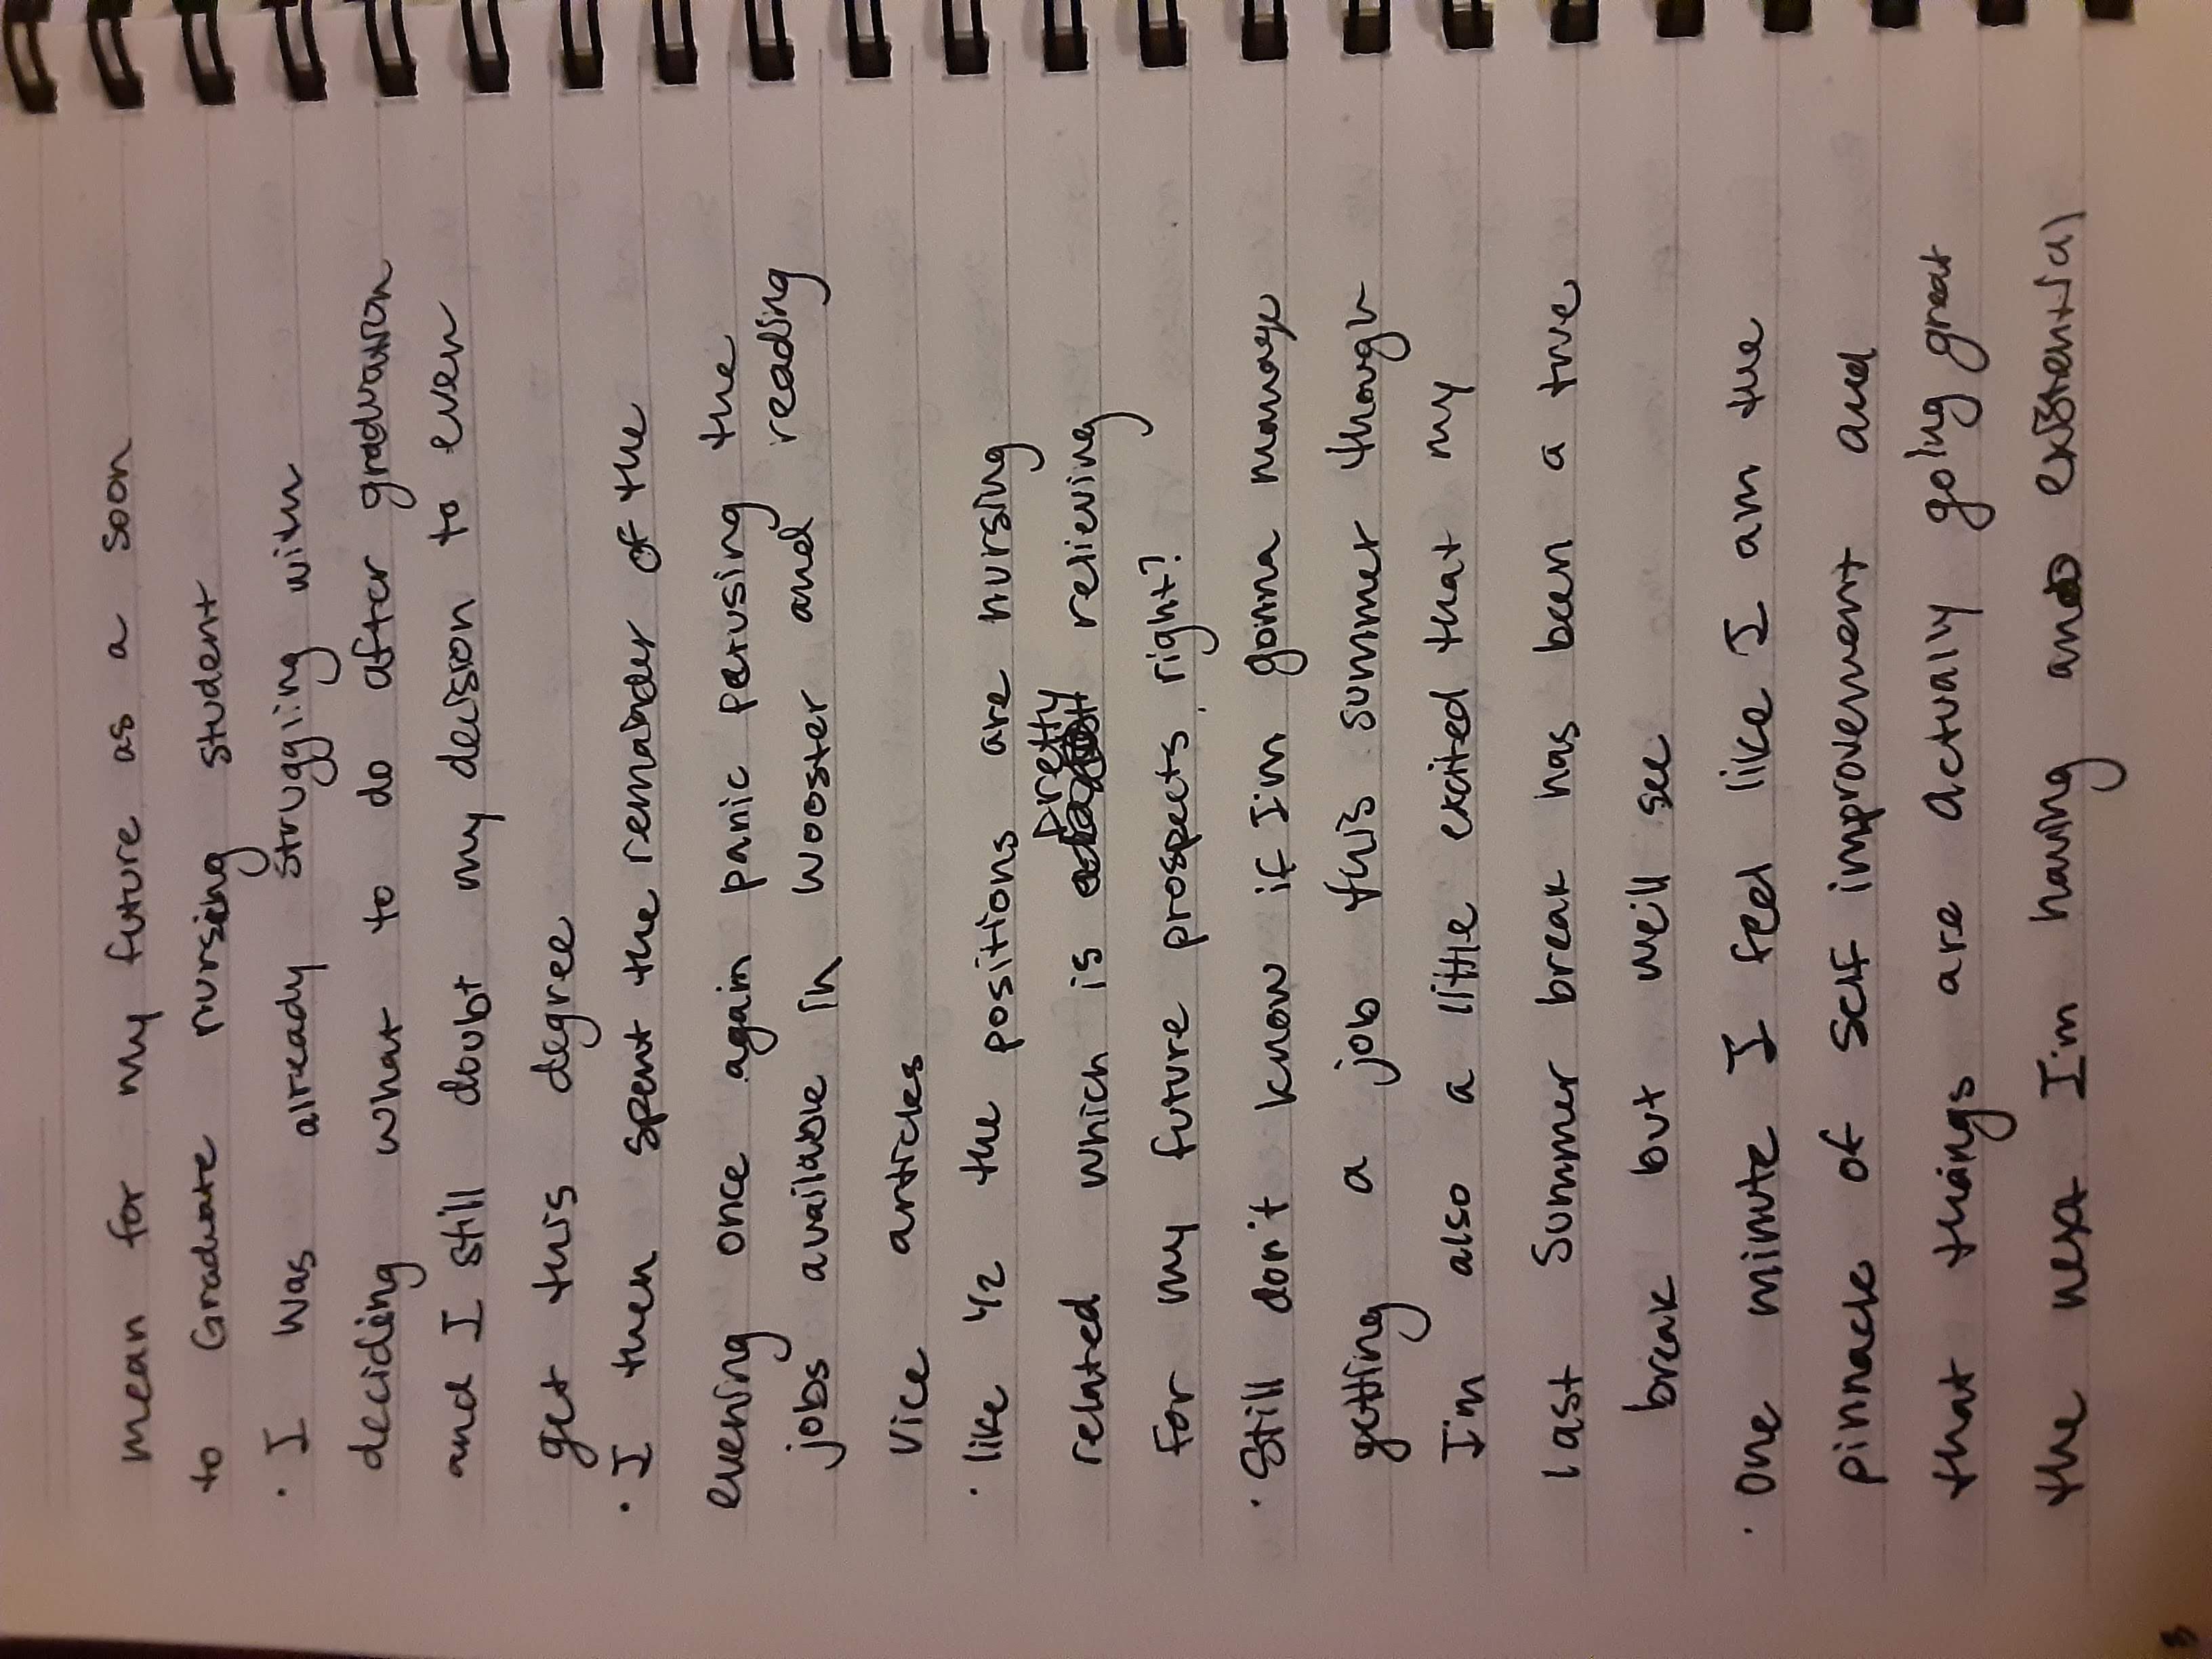 mean for my future as a soon
to Graduate nursing student
· I was already struggling with
deciding what to do after graduation
and I still doubt my decision to even
get this degree
· I then spent the remainder of the
evening once again panic perusing the
jobs available in Wooster and reading
Vice articles
· like 1/2 the positions are nursing
related which is pretty relieving
for my future prospects, right?
· Still don't know if I'm gonna manage
getting a job this summer though
I'm also a little excited that my
last summer break has been a true
break but we'll see
· One minute I feel like I am the
pinnacle of self improvement and
that things are actually going great
the next I'm having an existential